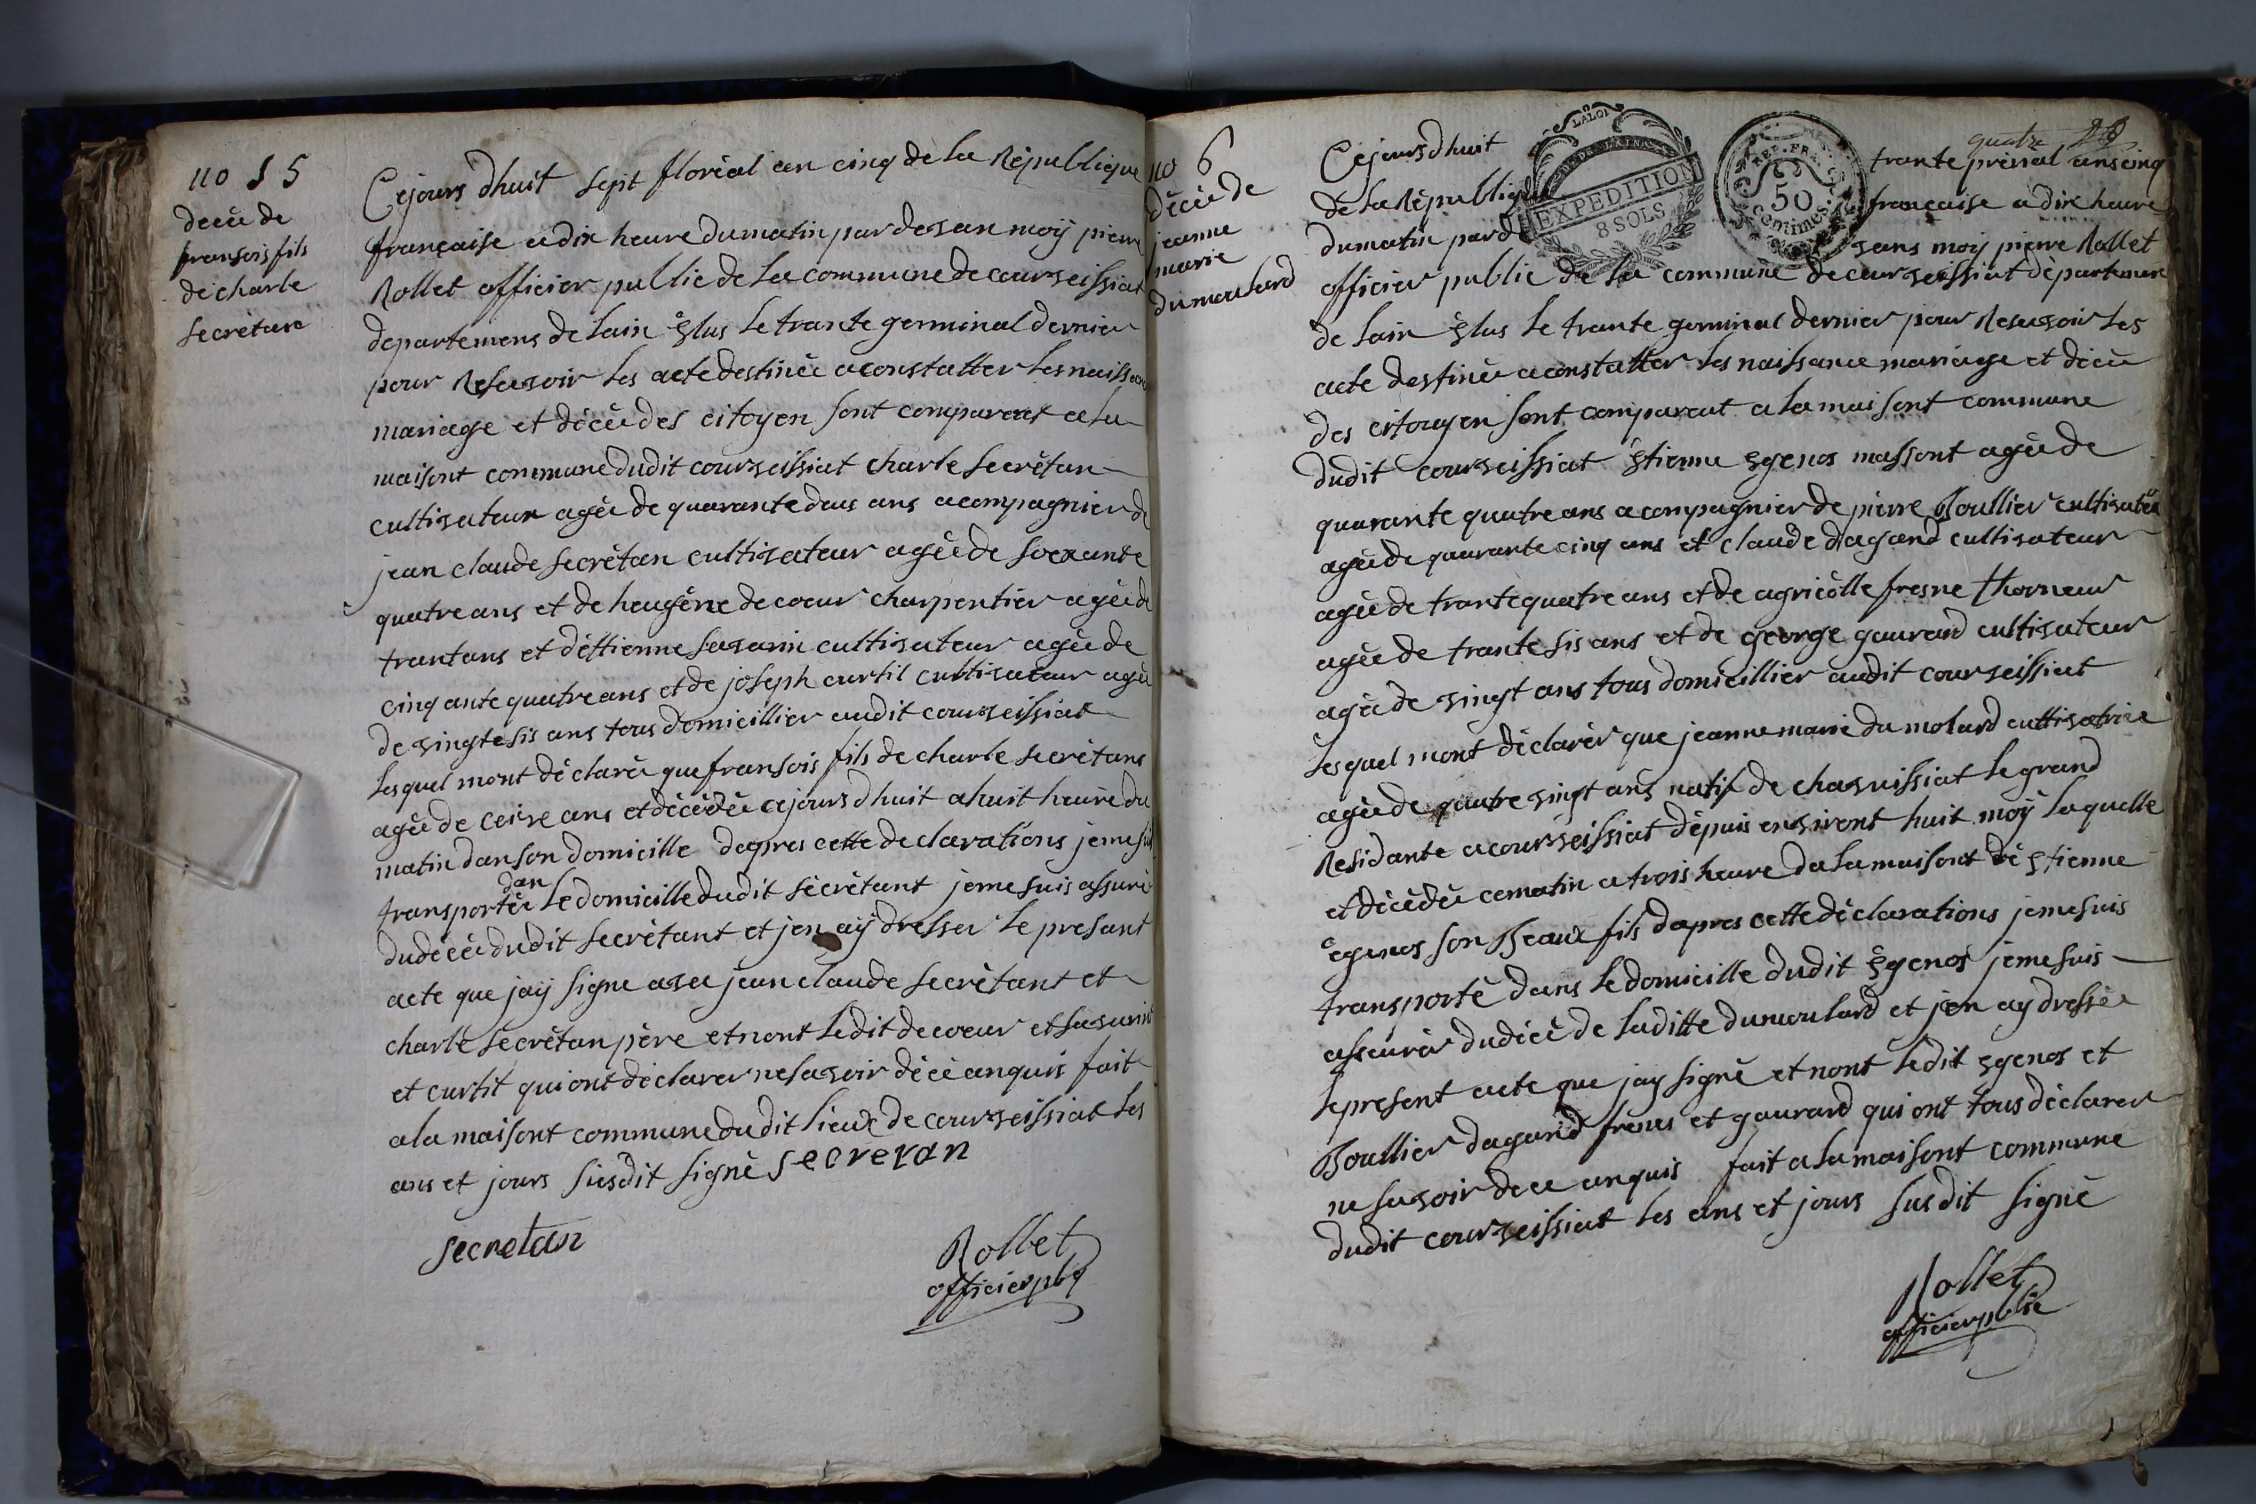 no 5
décée de
fransois fils
de charle
secrétan
Cejours dhuit sept floréal an cinq de la Republique
française a dix heure du matin par desan moÿ pierre
Rollet officier publie de la commune de courseissiat
departemens de lain Eslus le trante germinal dernier
pour Resesoir les acte destinée a constatter les naissan
mariage et décée des citoyen sont comparent a la
maisont commune dudit courseissiat charle secrétan
cultisateur agée de quarante deus ans acompagnier de
jean claude secrétan cultisateur agée de soexante
quatre ans et de heugéne decoeur charpentier agée de
trantans et déttienne sasarin cultisateur agée de
cinq ante quatre ans et de joseph curtil cultisateur agée
de singtesis ans tous domicillier audit courseissiat
lesquel mont déclarée que fransois fils de charle secrétans
agée de ceise ans et décédée cejours dhuit a huit heure du
matin dan son domicille dapres cette declarations jeme suis
dan
transportée le domicille dudit sécrétant jeme suis assuré
du décée dudit secrétant et jen aÿ dresser le presant
acte que jaÿ signe asec jean claude secrétant et
charle secrétan père et nont ledit decoeur et sasarin
et curtit qui ont déclarer ne sasoir décé anquis fait
a la maisont commune dudit lieux de courseissiat les
ans et jours susdit signé secretan
secretan
Rollet
officier pbq
no 6
décée de
jeanne
marie
dumoulard
LA LOI
EXPEDITION
8 SOLS
REP. FRA.
50
centimes
quatre
Cejours dhuit trante prérial ans cinq
de la République française a dix heure
du matin parde sans moÿ pierre Rollet
officier publie de la commune de courseissiat departemens
de lain Eslus le trante germinal dernier pour Resesoir les
acte destinée a constatter les naissance mariage et décée
des citoyen sont comparent a la maisont commune
dudit courseissiat Etienne Egenos massont agée de
quarante quatre ans acompagnier de pierre Boullier cultisateur
agée de quarante cinq ans et claude dagand cultisateur
agée de trante quatre ans et de agricolle fresne thorneur
agée de trante sis ans et de george gaurand cultisateur
agée de singt ans tous domicillier audit courseissiat
lesquel mont déclarér que jeanne marie du molard cultisatrice
agée de quatre singt ans natif de chasnissiat le grand
Residante a courseissiat dépuis ensiront huit moÿ laquelle
et décédée cematin a trois heure da la maisont dé Etienne
egenos son Beaux fils dapres cette déclarations jeme suis
transporté dans le domicille dudit Egenos jeme suis
asseurér du décé de laditte dumoulard et jen ay dressée
le present acte que jay signé et nont ledit Egenos et
Boullier dagand frénes et gaurard qui ont tous déclarer
ne sasoir dece anquis fait a la maisont commune
dudit courseissiat les ans et jours susdit signé
Rollet
officier publie